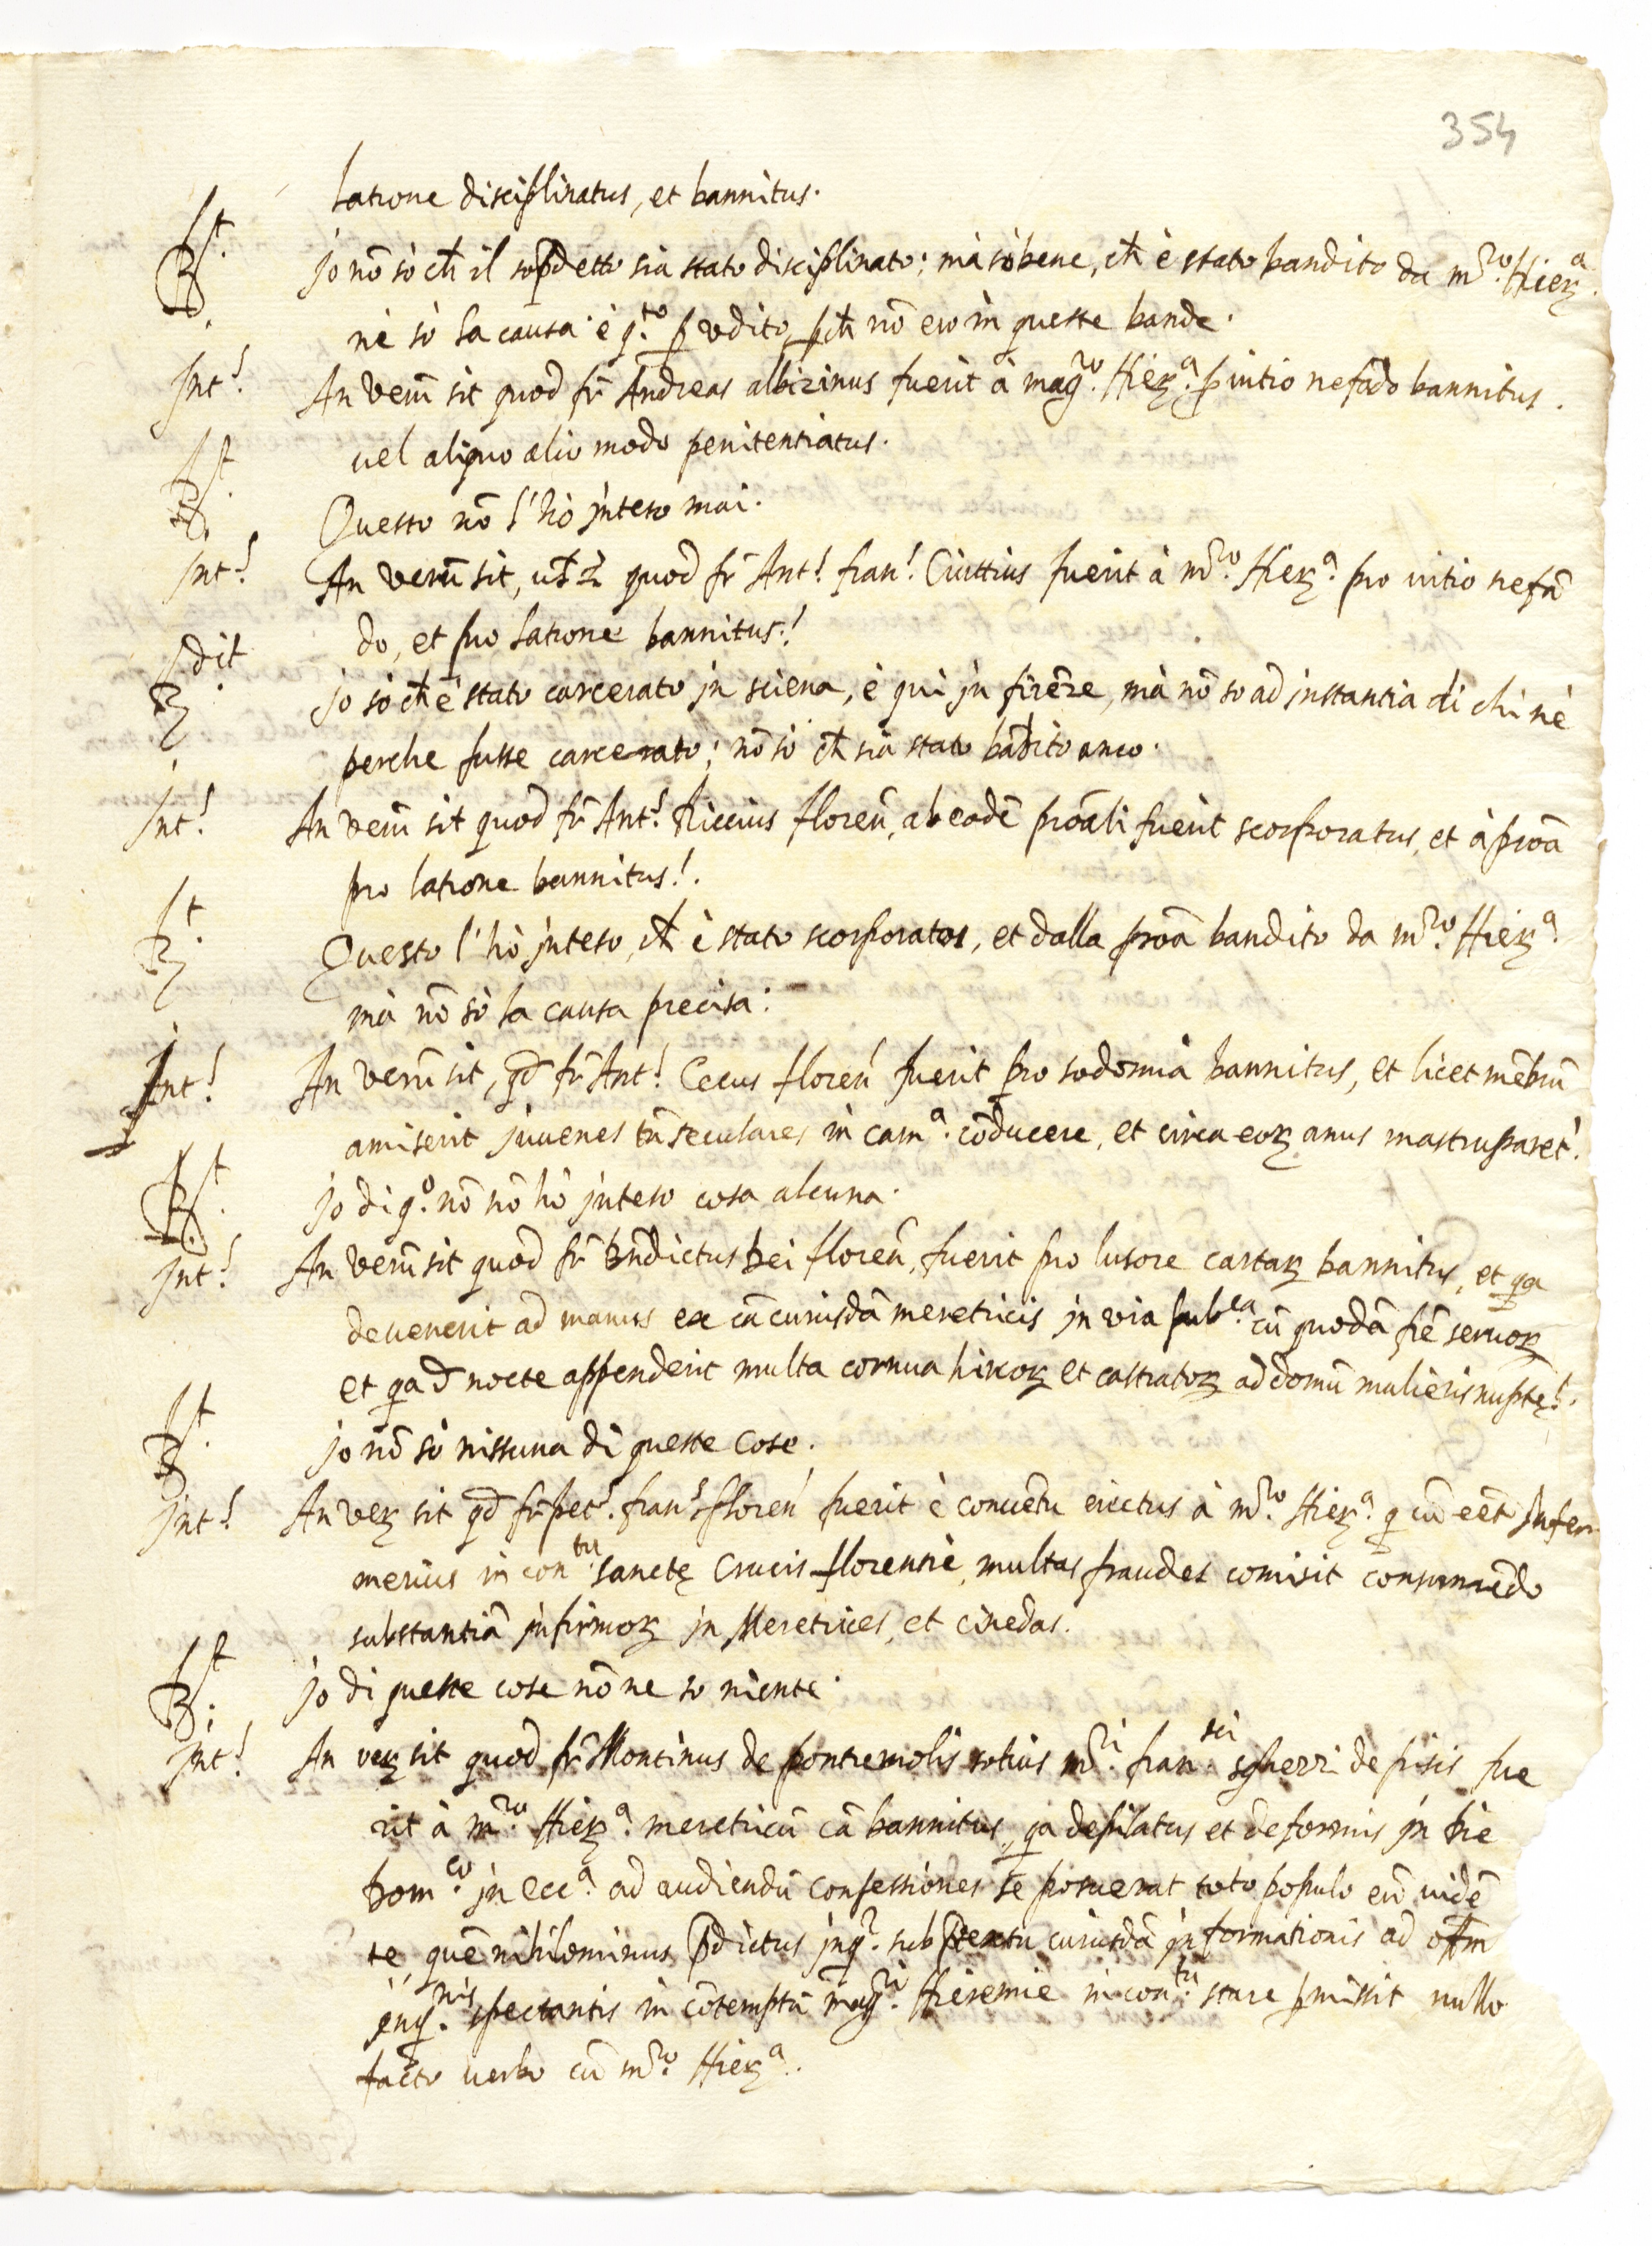 354
latione disciplinatus, et bannitus.
Rt. Jo nõ sò ch̃ il sop̃detto sia stato disciplinato; mà sò bene, ch̃ è stato bandito da m̃ro. Hierᵃ.
nè sò la causa è q.to p vdito, pch̃ nõ ero in queste bande.
Int! An verũ sit quod fr̃ Andreas albizinus fuerit à mag̃ro. Hierᵃ. p uitio nefãdo bannitus.
uel aliquo alio modo penitentiatus.
Rt. Questo nõ l'hò jnteso mai.
Int! An verũ sit, quod fr̃ Ant! fran! Ciuttius fuerit à m̃ro. Hierᵃ. pro uitio nefã
do, et pro latione bannitus!
Rdit. Jo sò ch̃ è stato carcerato jn sciena, è qui jn firẽze, mà nõ so ad jnstantia di chi nè
perche fusse carcerato; nõ sò ch̃ sia stato bãdito anco.
Int! An verũ sit quod fr̃ Ant! Riccius floreñ, ab eadẽ prõali fuerit scorporatus, et à proã
pro latione bannitus!.
Rt. Questo l'hò jnteso, ch̃ è stato scorporatos, et dalla proã bandito da m̃ro. Hierᵃ
mà nõ sò la causa precisa.
Int! An verũ sit, qd̃ fr̃ Ant! Cecus floreñ fuerit pro sodomia bannitus, et licet mẽbrũ
amiserit juuenes tñ seculares in camᵃ. cõducere, et circa eoꝝ anus mastruparet!
Rt. Jo di q.º nõ nõ hò jnteso cosa alcuna.
Int! An verũ sit quod fr̃ Bñdictus bei floreñ, fuerit pro lusore cartaꝝ bannitus, et qa
deuenerit ad manus ex cã cuiusdã meretricis jn via pub.ca cũ quodã frẽ seruoꝝ
et qa d nocte appenderit multa cornua hircoꝝ et castratoꝝ ad domũ mulieris nuptę!.
Rt. Jo nõ sò nissuna di queste cose.
Int! An veꝝ sit qd̃ fr̃ pet! fran! floreñ fuerit è conuẽtu eiectus à m̃ro. Hierᵃ. q cũ eẽt Jnfer
merius in con.tu sanctę Crucis florentiè, multas fraudes comisit consumẽdo
substantiã jnfirmoꝝ jn Meretrices, et cinedas.
Rt. Jo di queste cose nõ ne so niente.
Int! An veꝝ sit quod fr̃ Montinus de pontremolis sotius m̃ri. fran.sci sgherri de pisis fue
rit à m̃ro. Hierᵃ. meretricũ cã bannitus, qa depilatus et deformis jn
jn eccᵃ. ad audiendũ confessiones se posuerat toto populo eũ uidẽ
te, quẽ nihilominus p̃dictus jnq̃r. sub p̃textu cuiusdã jnformationis ad offm
jnq.nis spectantis in cõtemptũ mag̃ri. Hieremie in con.tu stare pmisit nullo
facto uerbo cũ m̃ro. Hierᵃ.